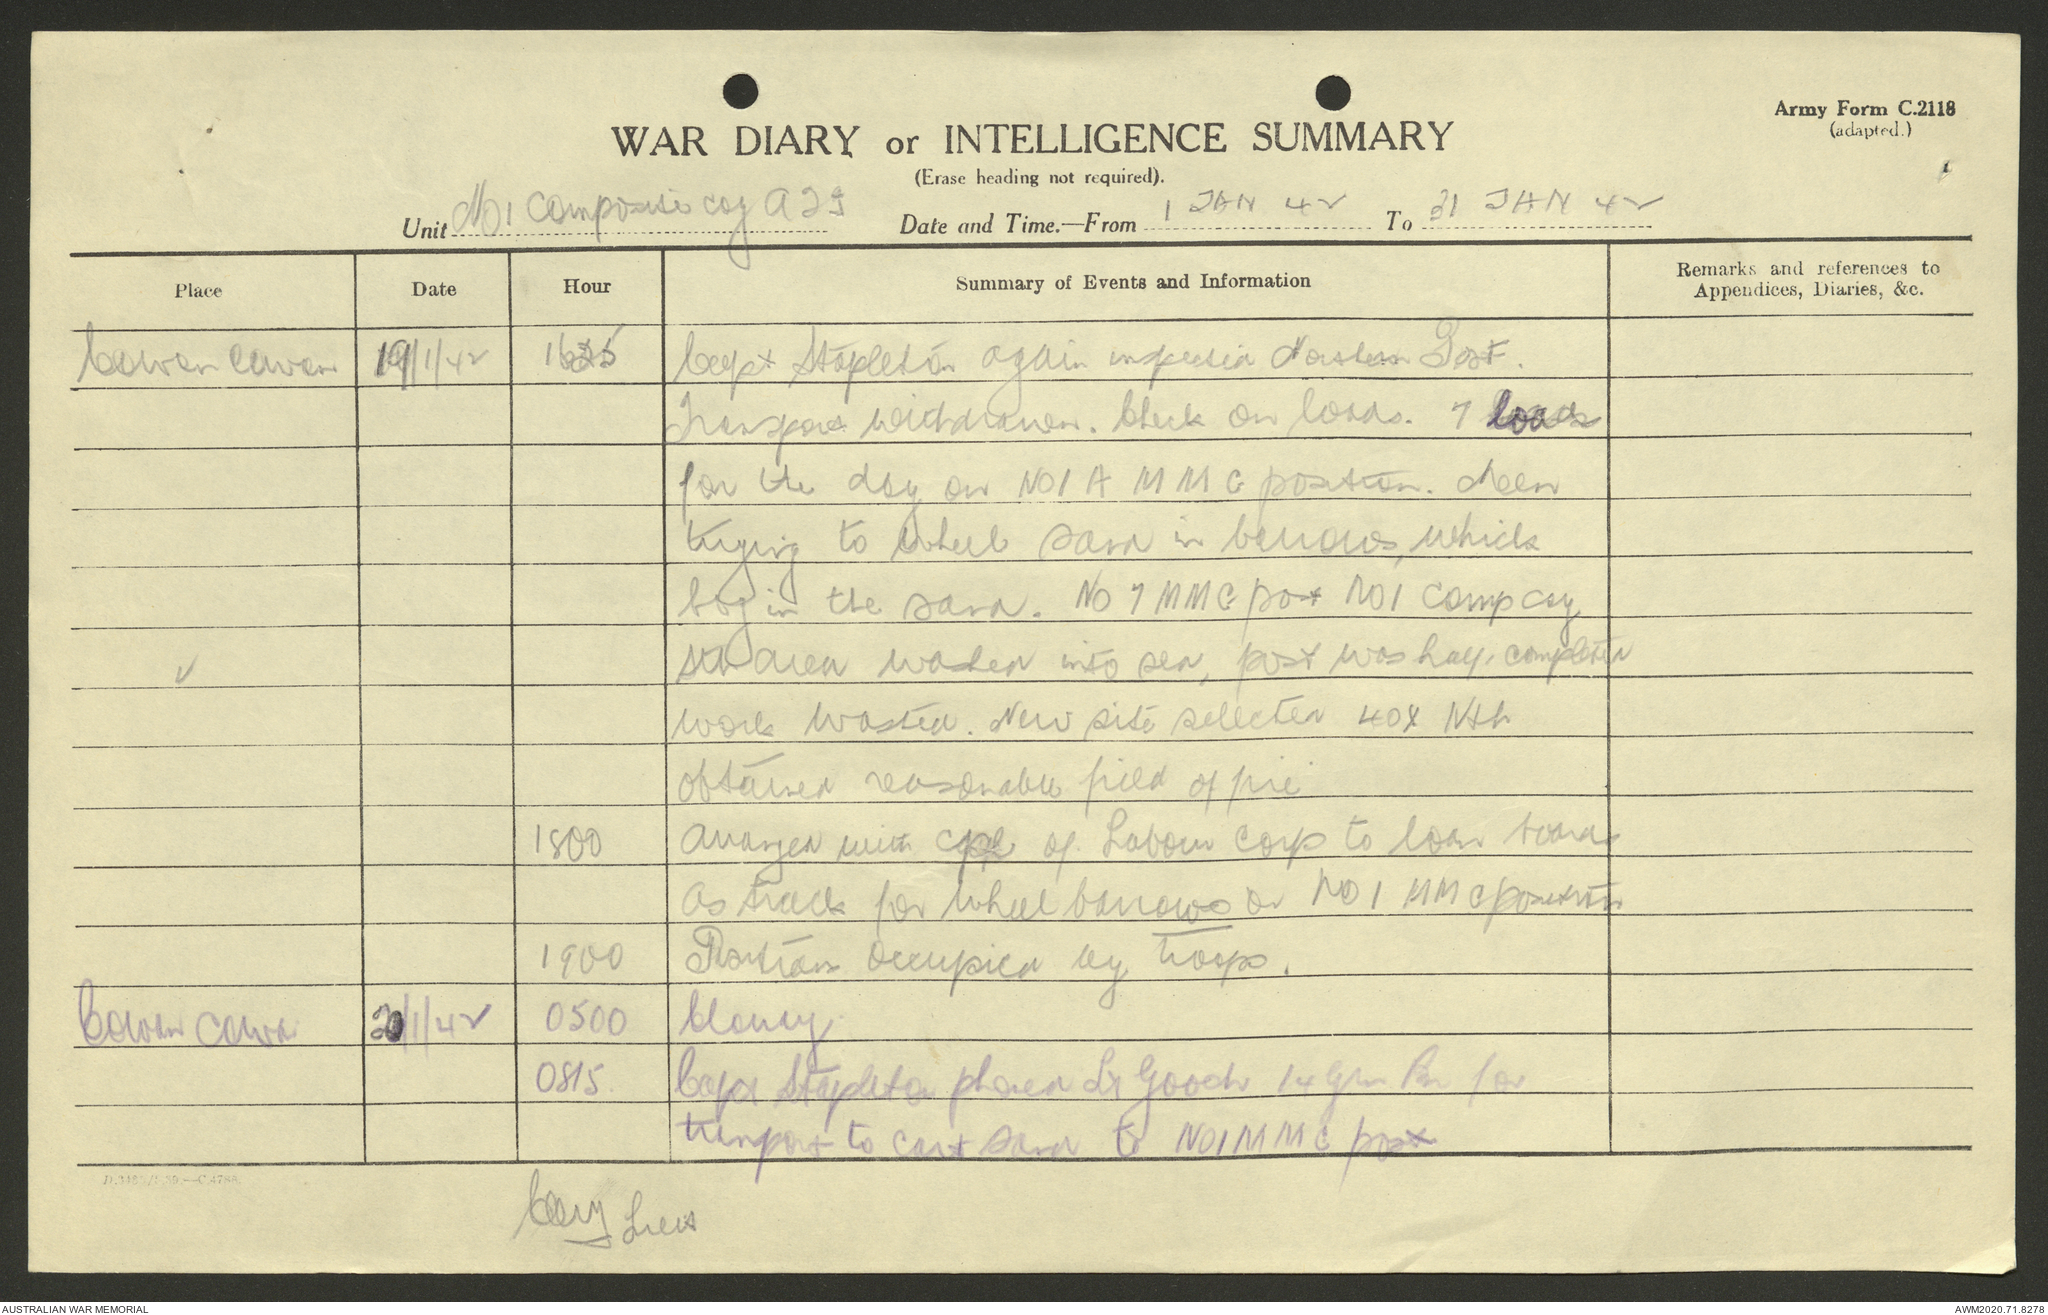 Army Form C.2118
(adapted.)
WAR DIARY or INTELLIGENCE SUMMARY
(Erase heading not required).
Unit No 1 Composite coy Date and Time.—From 1 JAN 42 To 31 JAN 42
Place Date Hour Summary of Events and Information Remarks and references to
Appendices, Diaries, &c.
Cowan Cowan 19/1/42 1625 Capt Stapleton again inspected Northern Post.
Transport withdrawn. Check on loads. 7 loads
for the day on NO 1 A M M G position. Men
trying to wheel sand in barrows, which
bog in the sand. No 7 MMG post NO 1 Comp coy
sth area washed into sea, post was half completed
work wasted. New site selected 40x Nth
obtained reasonable field of fire
1800 Arranged with of Labour Corp to loan boards
as track for wheel barrows on NO 1 MMG position
1900 Positions occupied by troops.
Cowan Cowan 20/1/42 0500 Cloudy.
0815. Capt Stapleton phoned Lt Gooch 14 Grn Bn for
transport to cart sand to NO 1 MMG post
Lieut
AUSTRALIAN WAR MEMORIAL
AWM2020.71.8278